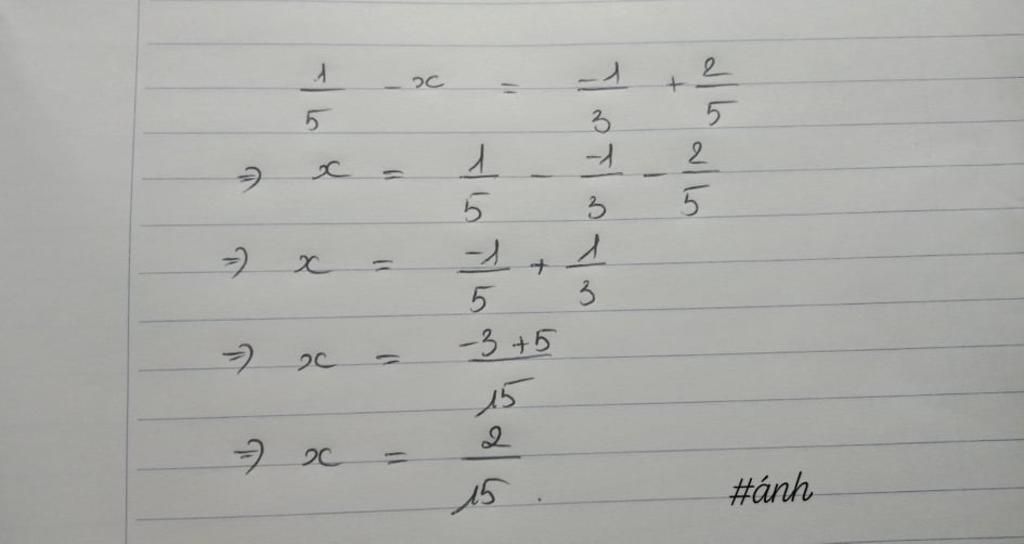 1/5 - x = -1/3 + 2/5
⇒ x = 1/5 - -1/3 - 2/5
⇒ x = -1/5 + 1/3
⇒ x = -3+5/15
⇒ x = 2/15.
#ánh